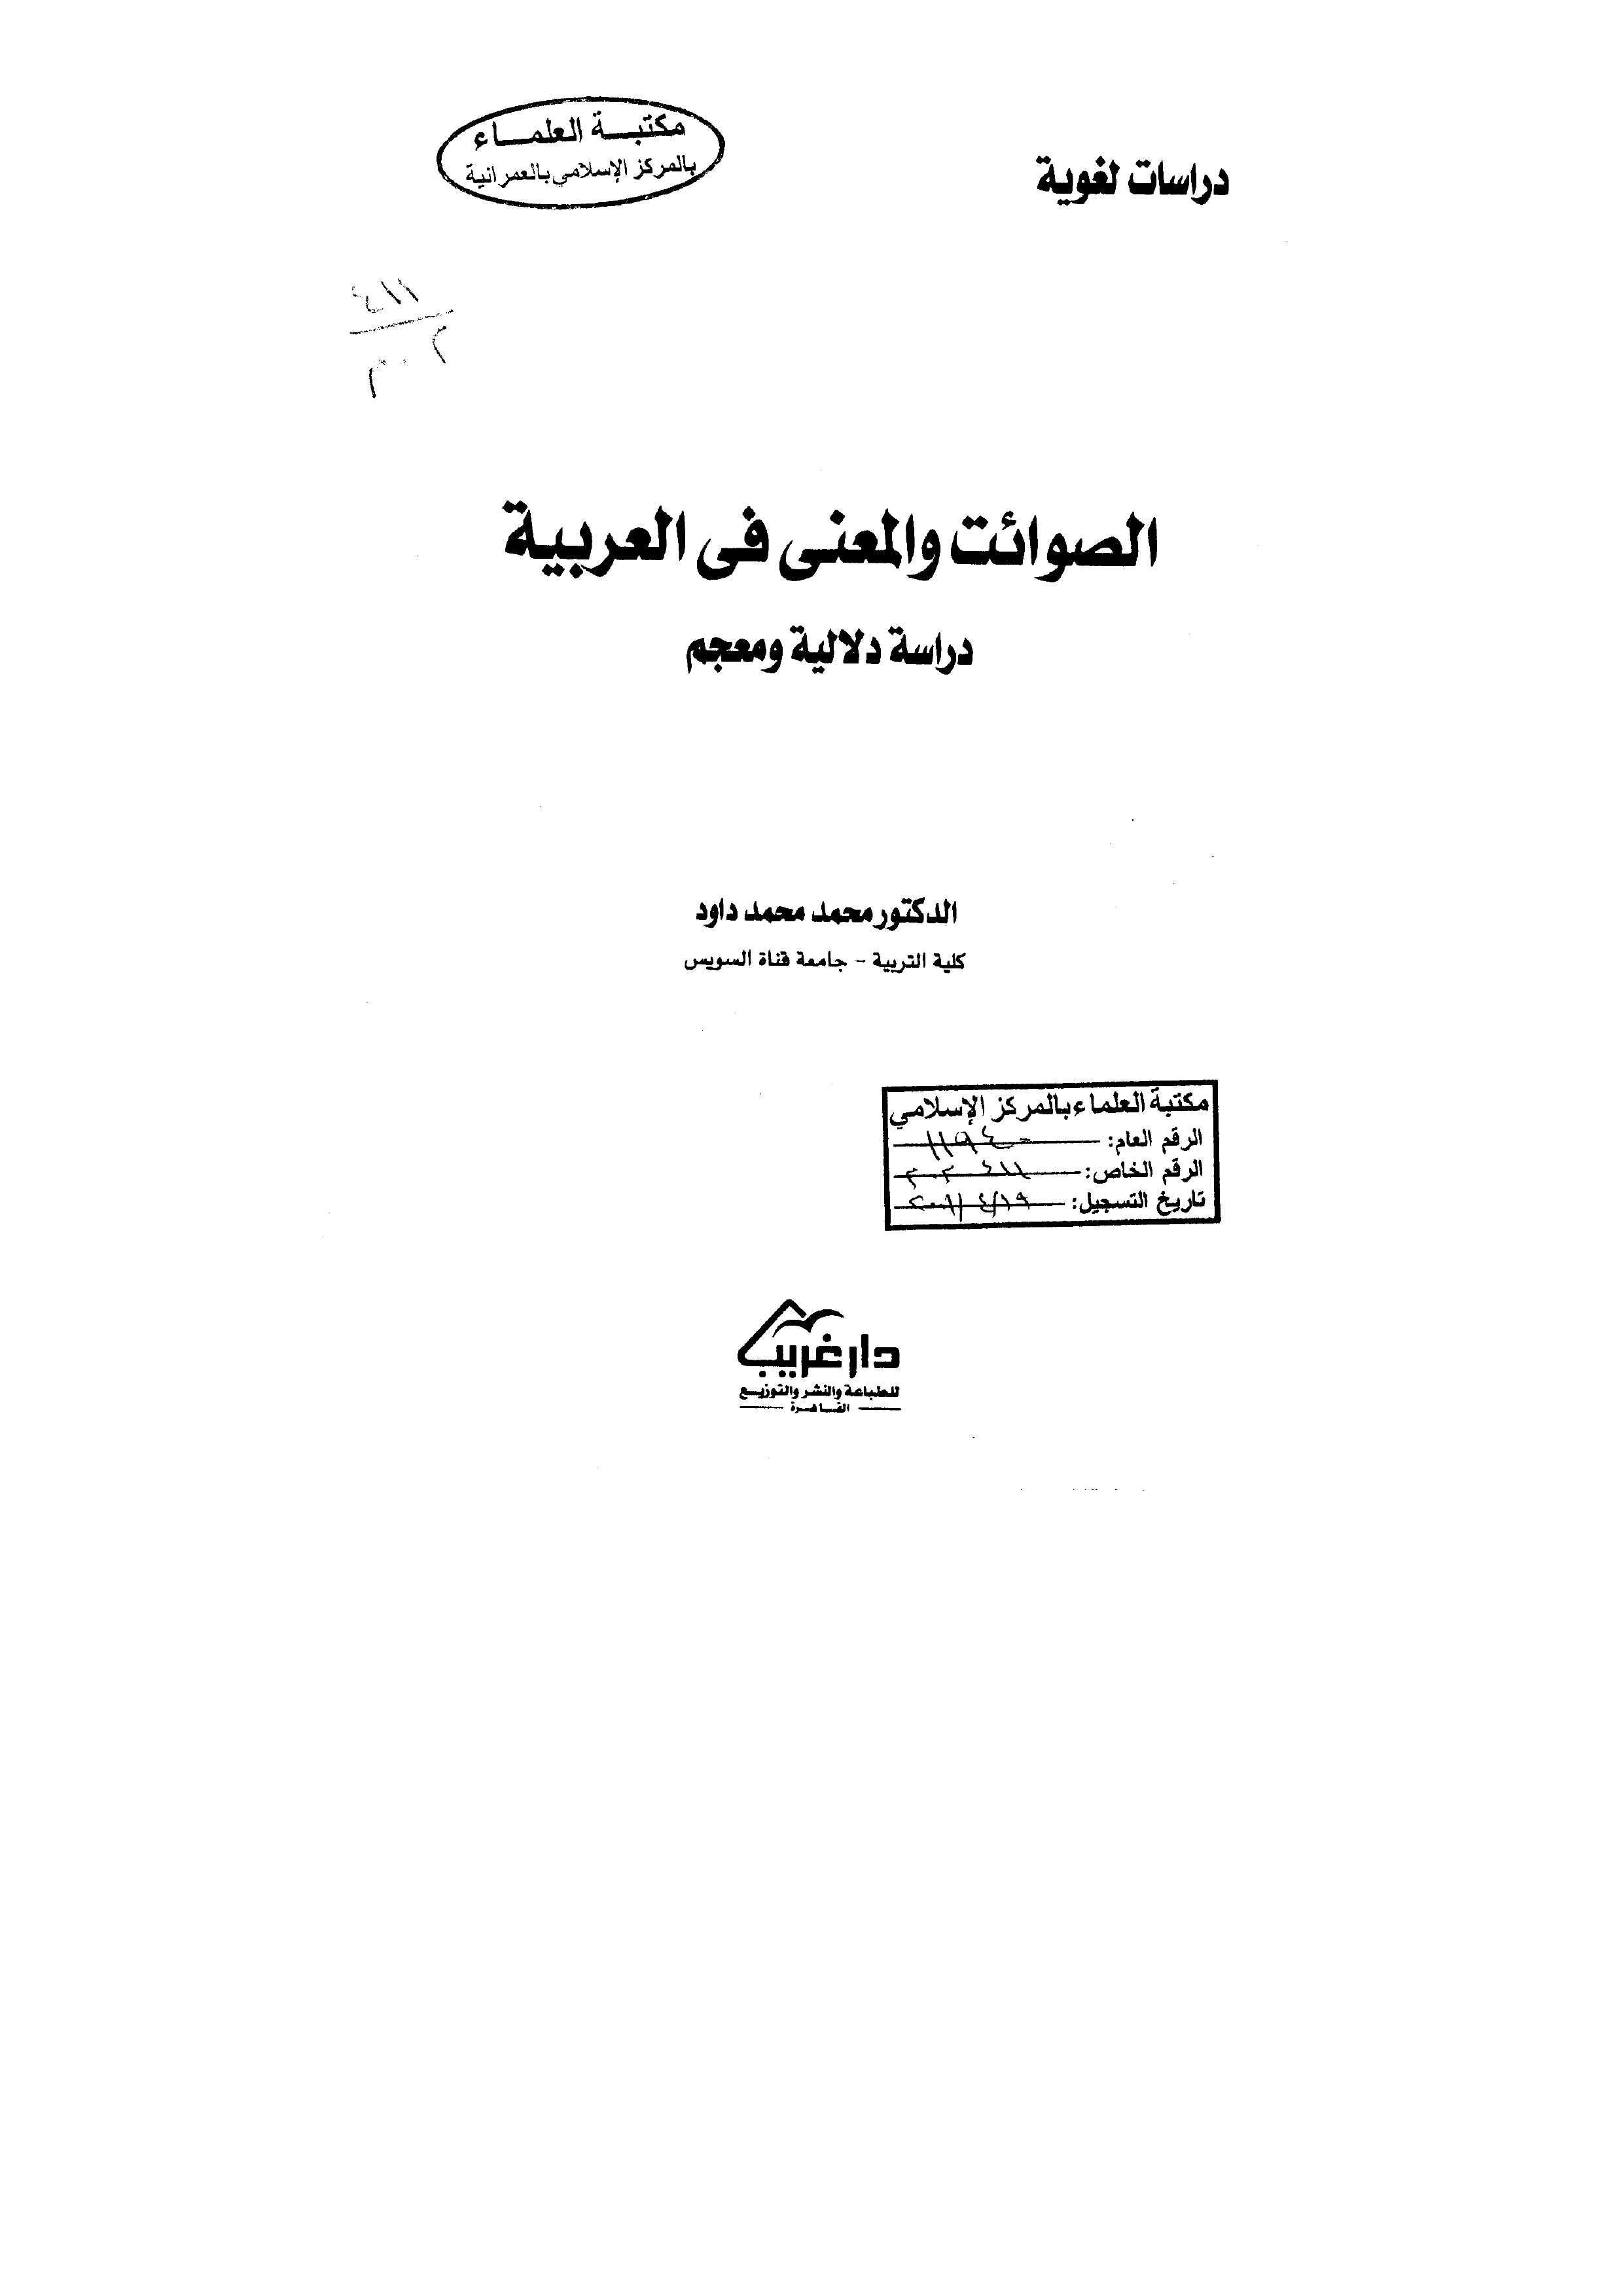 دراسات لغوية
مكتبة العلماء
بالمركز الإسلامي بالعمرانية
٤١١
الصوائت والمعنى فى العربية
دراسة دلالية ومعجم
الدكتور محمد محمد داود
كلية التربية - جامعة قناة السويس
مكتبة العلماء بالمركز الإسلامي
الرقم العام: ١١٩٤٠
الرقم الخاص: ٤١١
تاريخ التسجيل: ٢٠٠١/٤/١٩
دار غريب
للطباعة والنشر والتوزيع
القاهرة